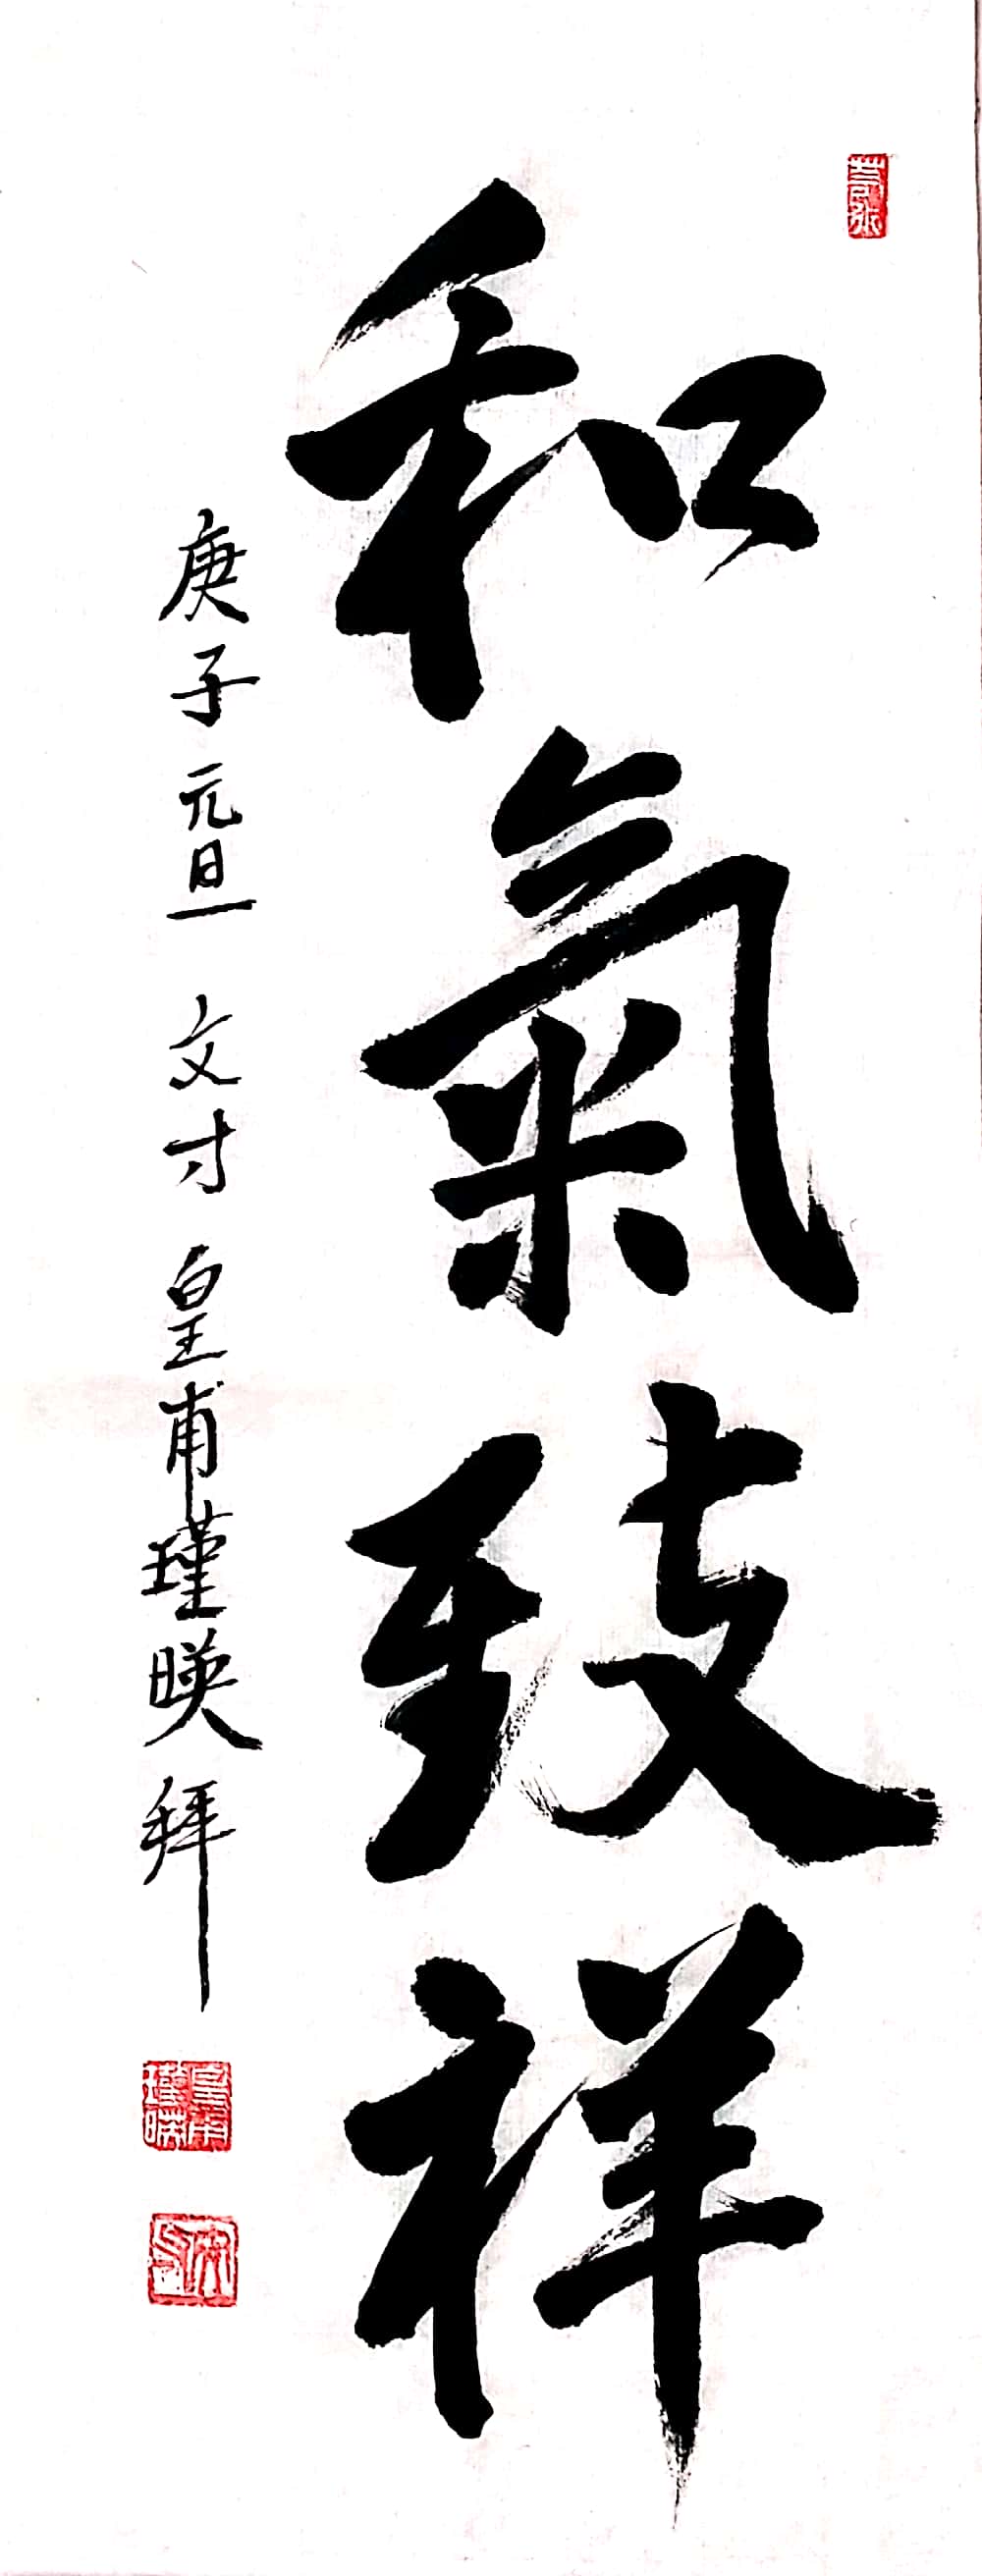 和氣致祥
庚子元旦 文才 皇甫瑾暎 拜
皇甫瑾暎